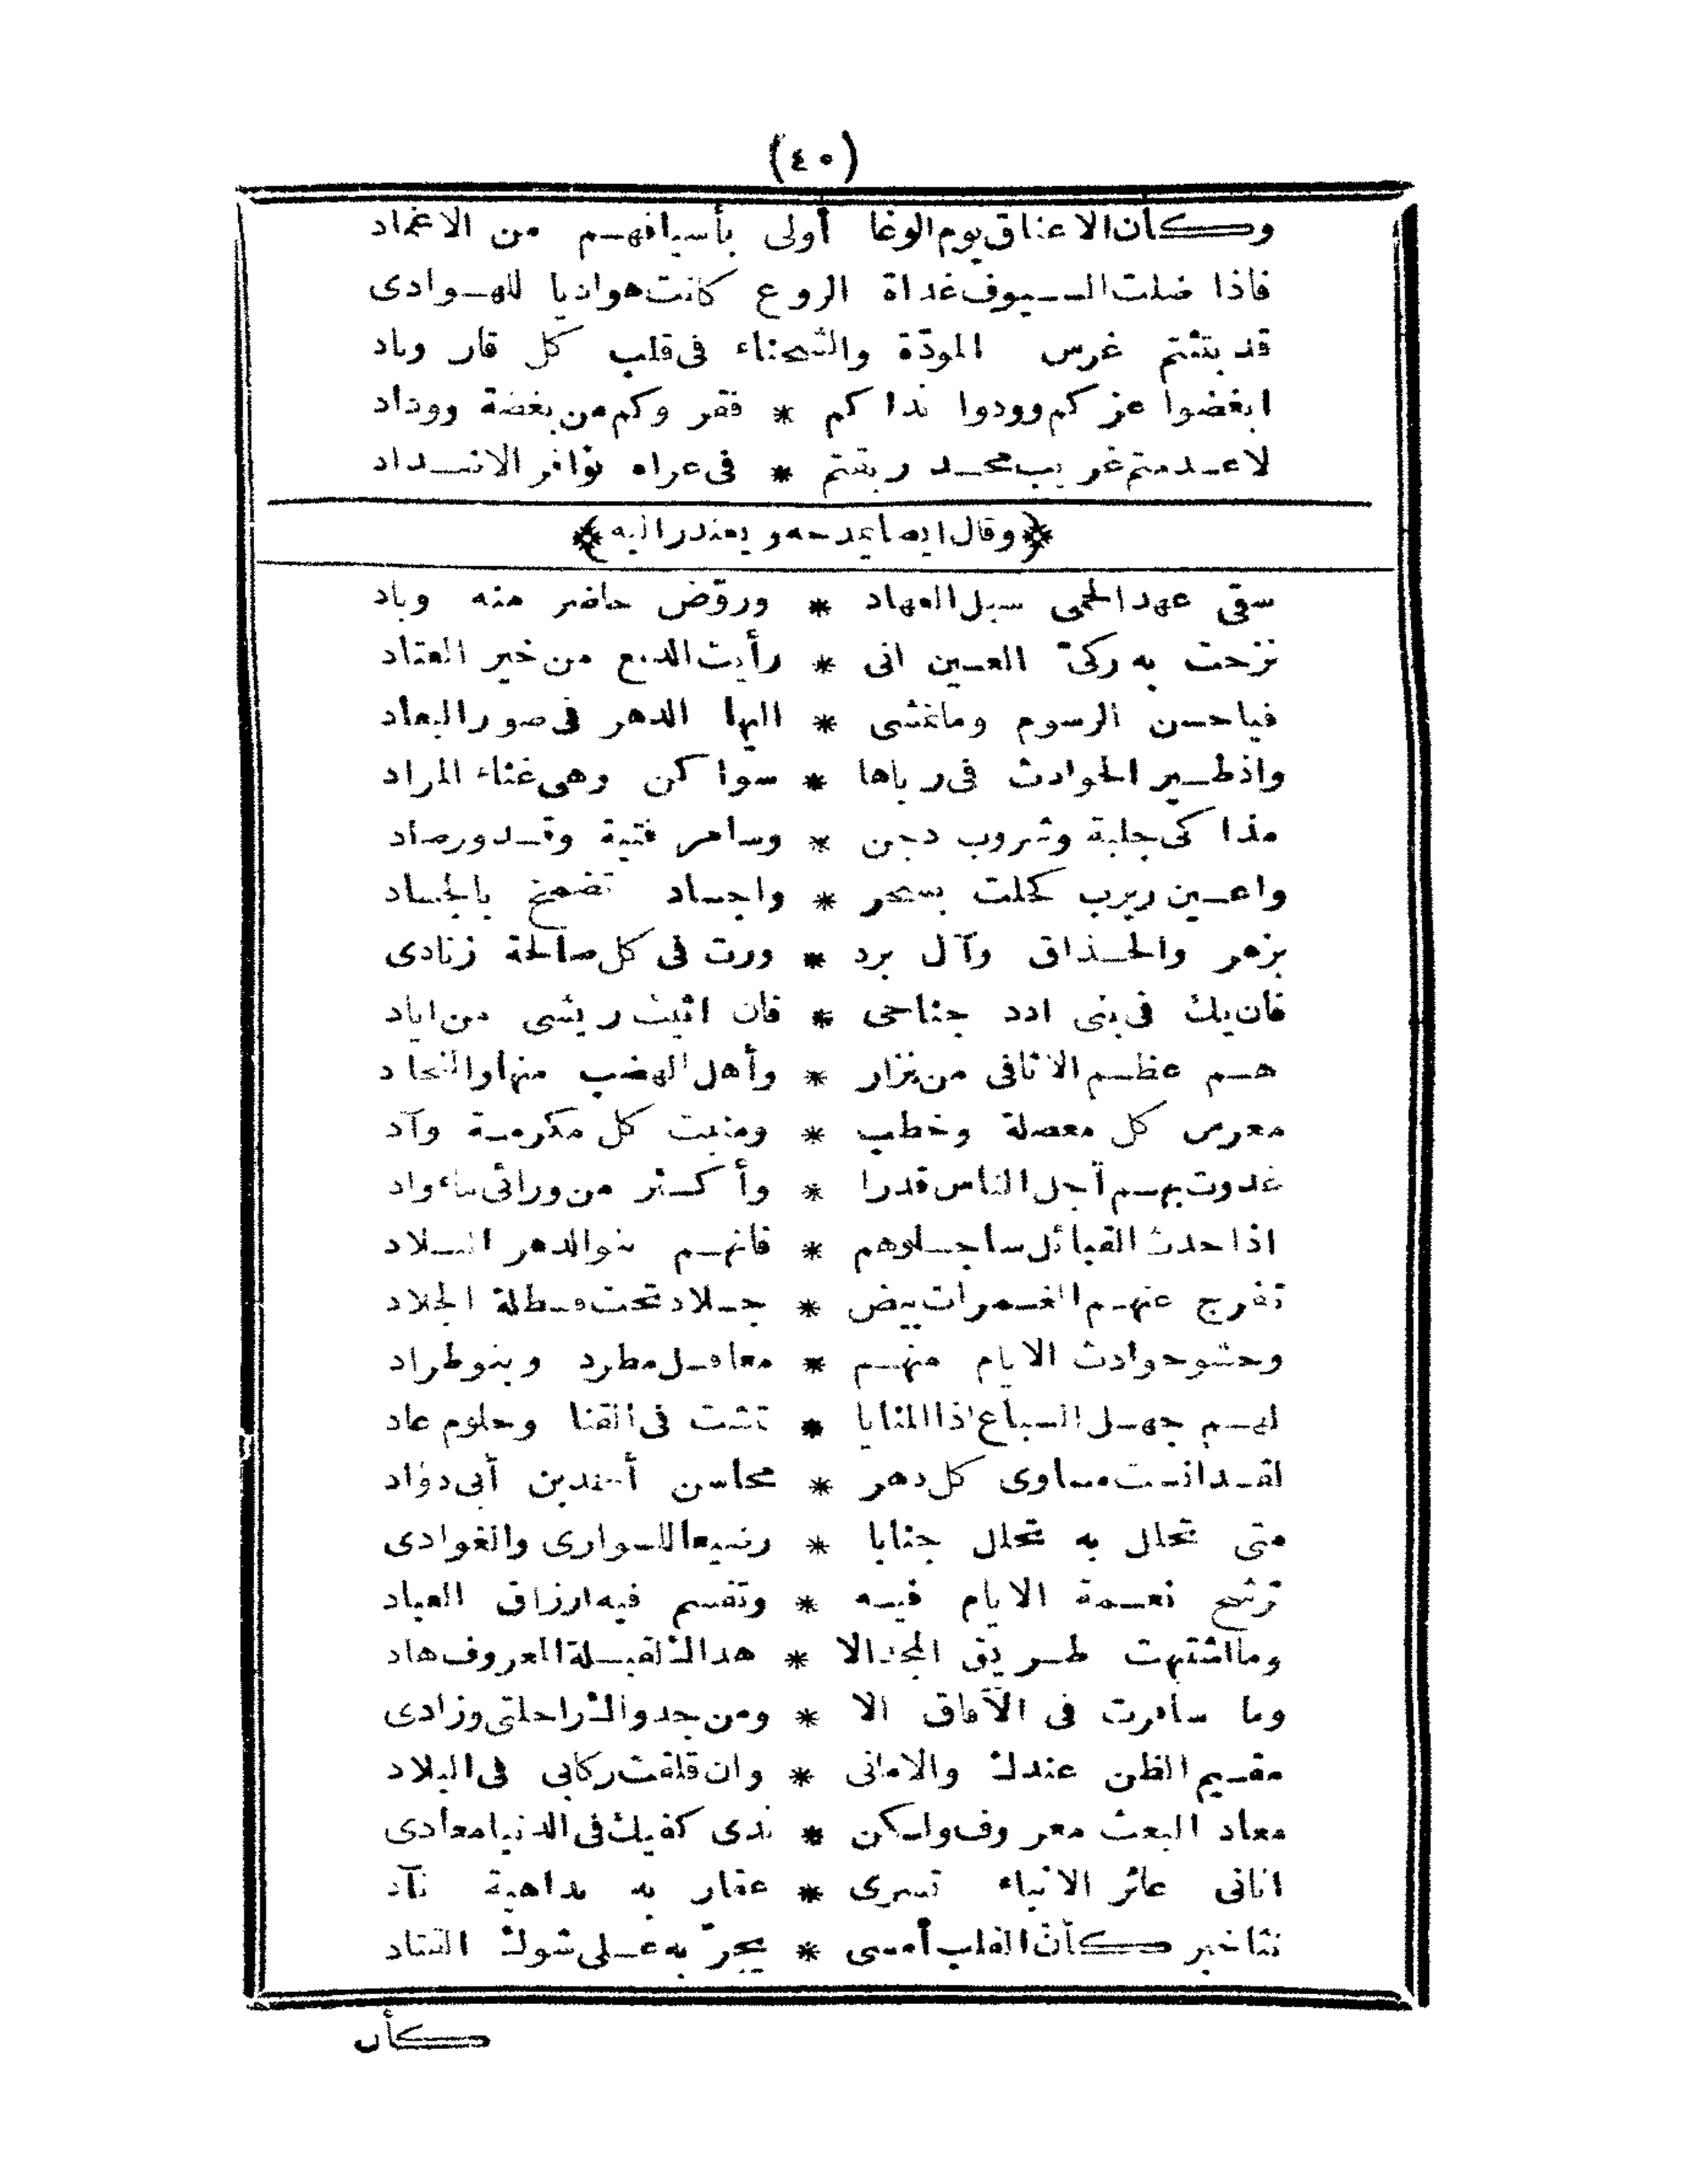 (٤٠)
وكأن الاعناق يوم الوغا أولى بأسيافهم من الاغماد
فاذا ضلت السيوف غداة الروع كانت هواديا للهوادى
قد بثثتم غرس المودّة والشحناء فى قلب كل قار وباد
ابغضوا عزكم وودوا نداكم * فقر وكم من بغضة ووداد
لاعدمتم غريب مجد ربقتم * فى عراه نوافر الاضداد
﴿وقال ايضا يمدحه ويعتذر اليه﴾
سقى عهد الحمى سبل العهاد * وروّض حاضر منه وباد
نزحت به ركىّ العين انى * رأيت الدمع من خير العتاد
فيا حسن الرسوم وما تمشى * اليها الدهر فى صور البعاد
واذ طير الحوادث فى رباها * سواكن وهى غناء المراد
مذاكى حلبة وشروب دجن * وسامر فتية وقدور صاد
واعين ربرب كحلت بسحر * واجساد تضمخ بالجساد
بزهر والحذاق وآل برد * ورت فى كل صالحة زنادى
فان يك فى بنى ادد جناحى * فان اثيث ريشى من اياد
هم عظم الاثافى من نزار * وأهل الهضب منها والنجاد
معرس كل معضلة وخطب * ومنبت كل مكرمة وآد
غدوت بهم أجل الناس قدرا * وأكثر من ورائى ماء واد
اذا حدث القبائل ساجلوهم * فانهم بنو الدهر التلاد
تفرج عنهم الغمرات بيض * جلاد تحت قسطلة الجلاد
وحشو حوادث الايام منهم * معاقل مطرد وبنو طراد
لهم جهل السباع اذا المنايا * تمشت فى القنا وحلوم عاد
لقد انست مساوى كل دهر * محاسن أحمد بن أبى دؤاد
متى تحلل به تحلل جنابا * رضيعا للسوارى والغوادى
ترشح نعمة الايام فيه * وتقسم فيه ارزاق العباد
وما اشتبهت طريق المجد الا * هداك لقبلة المعروف هاد
وما سافرت فى الآفاق الا * ومن جدواك راحلتى وزادى
مقيم الظن عندك والامانى * وان قلقت ركابى فى البلاد
معاد البعث معروف ولكن * ندى كفيك فى الدنيا معادى
اتانى عائر الانباء تسرى * عقار به بداهية نآد
نثا خبر كأن القلب أمسى * يجرّ به على شوك القتاد
كأن